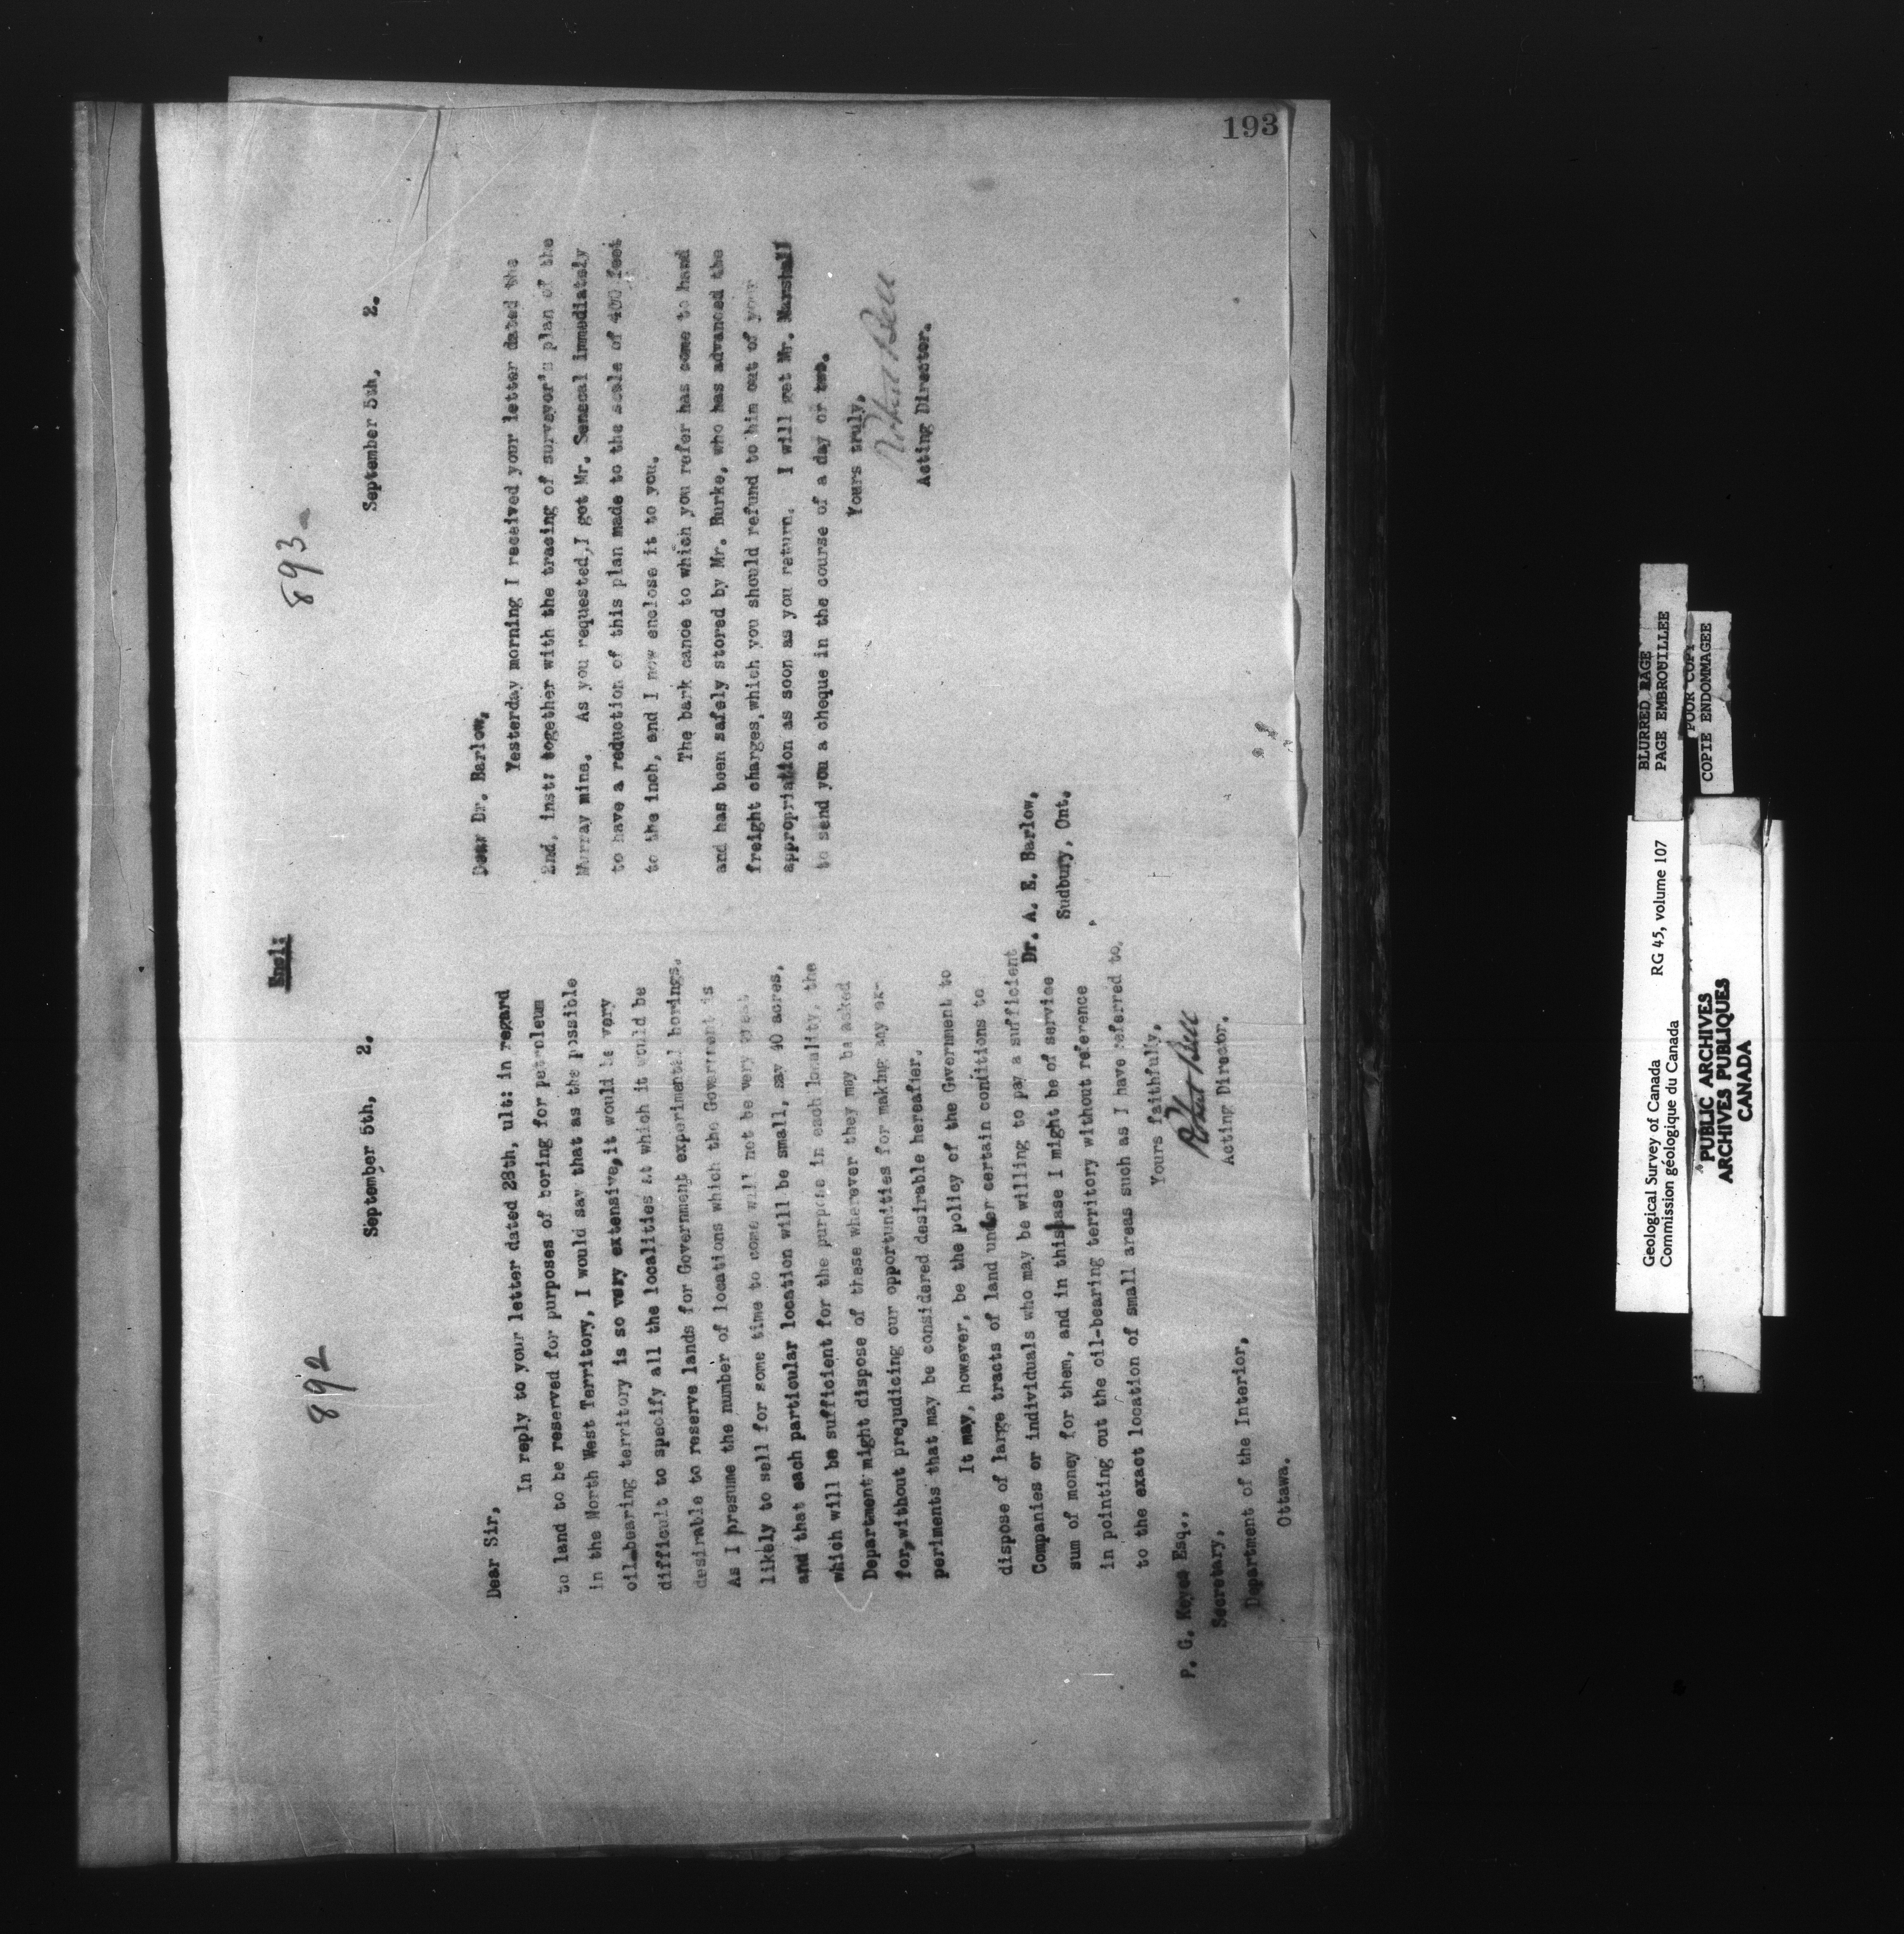 193
892
September 5th, 2.
Dear Sir,
In reply to your letter dated 28th, ult: in regard
to land to be reserved for purposes of boring for petroleum
in the North West Territory, I would say that as the possible
oil-bearing territory is so very extensive, it would be very
difficult to specify all the localities at which it would be
desirable to reserve lands for Government experimental borings.
As I presume the number of locations which the Government is
likely to sell for some time to come will not be very great
and that each particular location will be small, say 40 acres,
which will be sufficient for the purpose in each locality, the
Department might dispose of these wherever they may be asked
for, without prejudicing our opportunities for making any ex-
periments that may be considered desirable hereafier.
It may, however, be the policy of the Government to
dispose of large tracts of land under certain conditions to
Companies or individuals who may be willing to pay a sufficient
sum of money for them, and in this case I might be of service
in pointing out the oil-bearing territory without reference
to the exact location of small areas such as I have referred to.
Yours faithfully,
Robert Bell
Acting Director.
P. G. Keyes Esq.,
Secretary,
Department of the Interior,
Ottawa.
Encl:
893
September 5th, 2.
Dear Dr. Barlow,
Yesterday morning I received your letter dated the
2nd, inst: together with the tracing of surveyor's plan of the
Murray mine. As you requested, I got Mr. Senecal immediately
to have a reduction of this plan made to the scale of 400 feet
to the inch, and I now enclose it to you.
The bark canoe to which you refer has come to hand
and has been safely stored by Mr. Burke, who has advanced the
freight charges, which you should refund to him out of your
appropriation as soon as you return. I will get Mr. Marshall
to send you a cheque in the course of a day or two.
Yours truly,
Robert Bell
Acting Director.
Dr. A. E. Barlow,
Sudbury, Ont.
BLURRED PAGE
PAGE EMBROUILLEE
POOR COPY
COPIE ENDOMMAGEE
Geological Survey of Canada
Commission géologique du Canada
RG 45, volume 107
PUBLIC ARCHIVES
ARCHIVES PUBLIQUES
CANADA